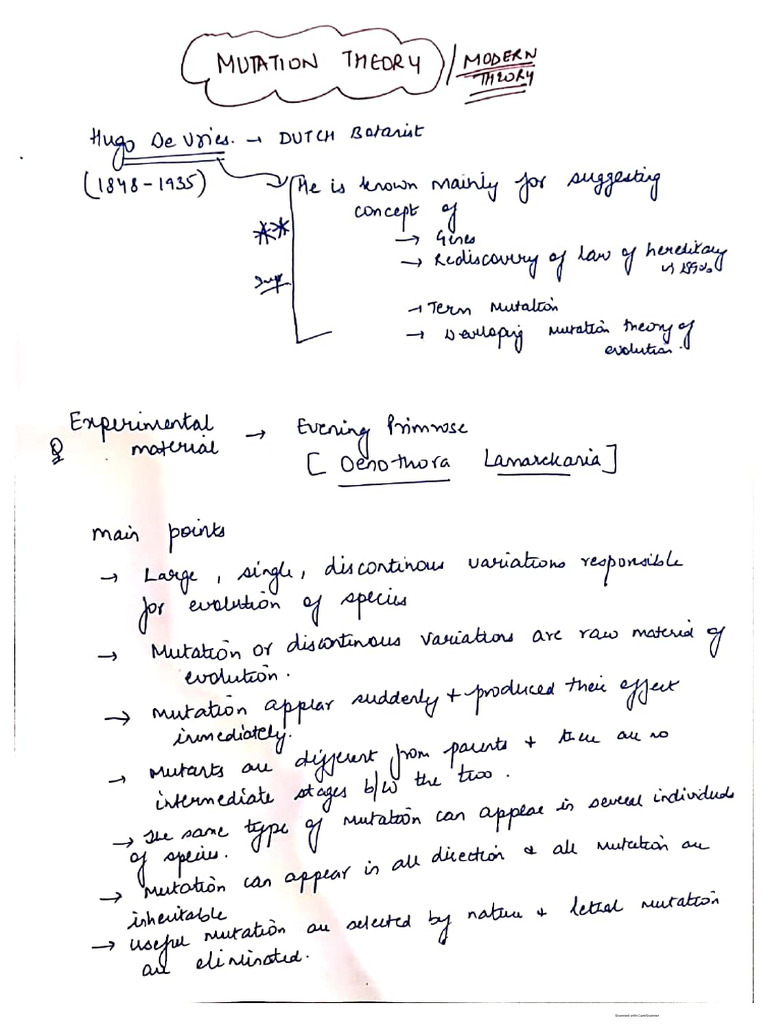 MUTATION THEORY / MODERN THEORY
Hugo De Vries. → DUTCH Botanist
(1848-1935)
He is known mainly for suggesting
concept of
→ Genes
→ Rediscovery of law of hereditary
in 1890s
** Imp
→ Term Mutation
→ Developing mutation theory of
evolution.
Experimental
material → Evening Primrose
Q
[Oenothora Lamarckaria]
main points
→ Large, single, discontinous variations responsible
for evolution of species
→ Mutation or discontinous variations are raw material of
evolution.
→ Mutation appear suddenly + produced their effect
immediately.
→ Mutants are different from parents + there are no
intermediate stages b/w the two.
→ The same type of Mutation can appear in several individuals
of species.
→ Mutation can appear in all direction & all mutation are
inheritable
→ Useful mutation are selected by nature + lethal mutation
are eliminated.
Scanned with CamScanner